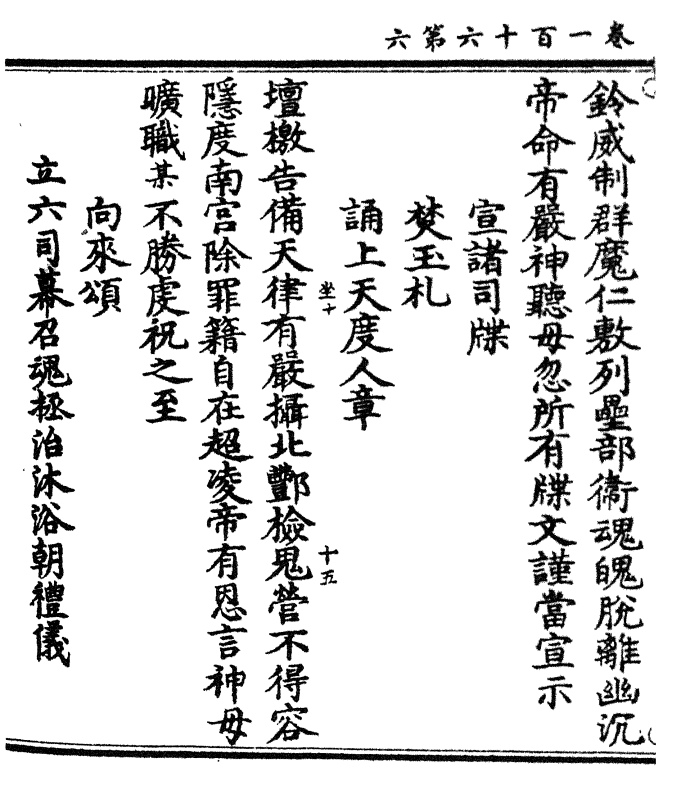 卷一百十六第六
鈴威制群魔仁敷列壘部衛魂魄脫離幽沉
帝命有嚴神聽毋忽所有牒文謹當宣示
宣諸司牒
焚玉札
誦上天度人章
坐十
十五
壇檄告備天律有嚴攝北酆檢鬼營不得容
隱度南宮除罪籍自在超凌帝有恩言神毋
曠職某不勝虔祝之至
向來頌
立六司幕召魂拯治沐浴朝禮儀